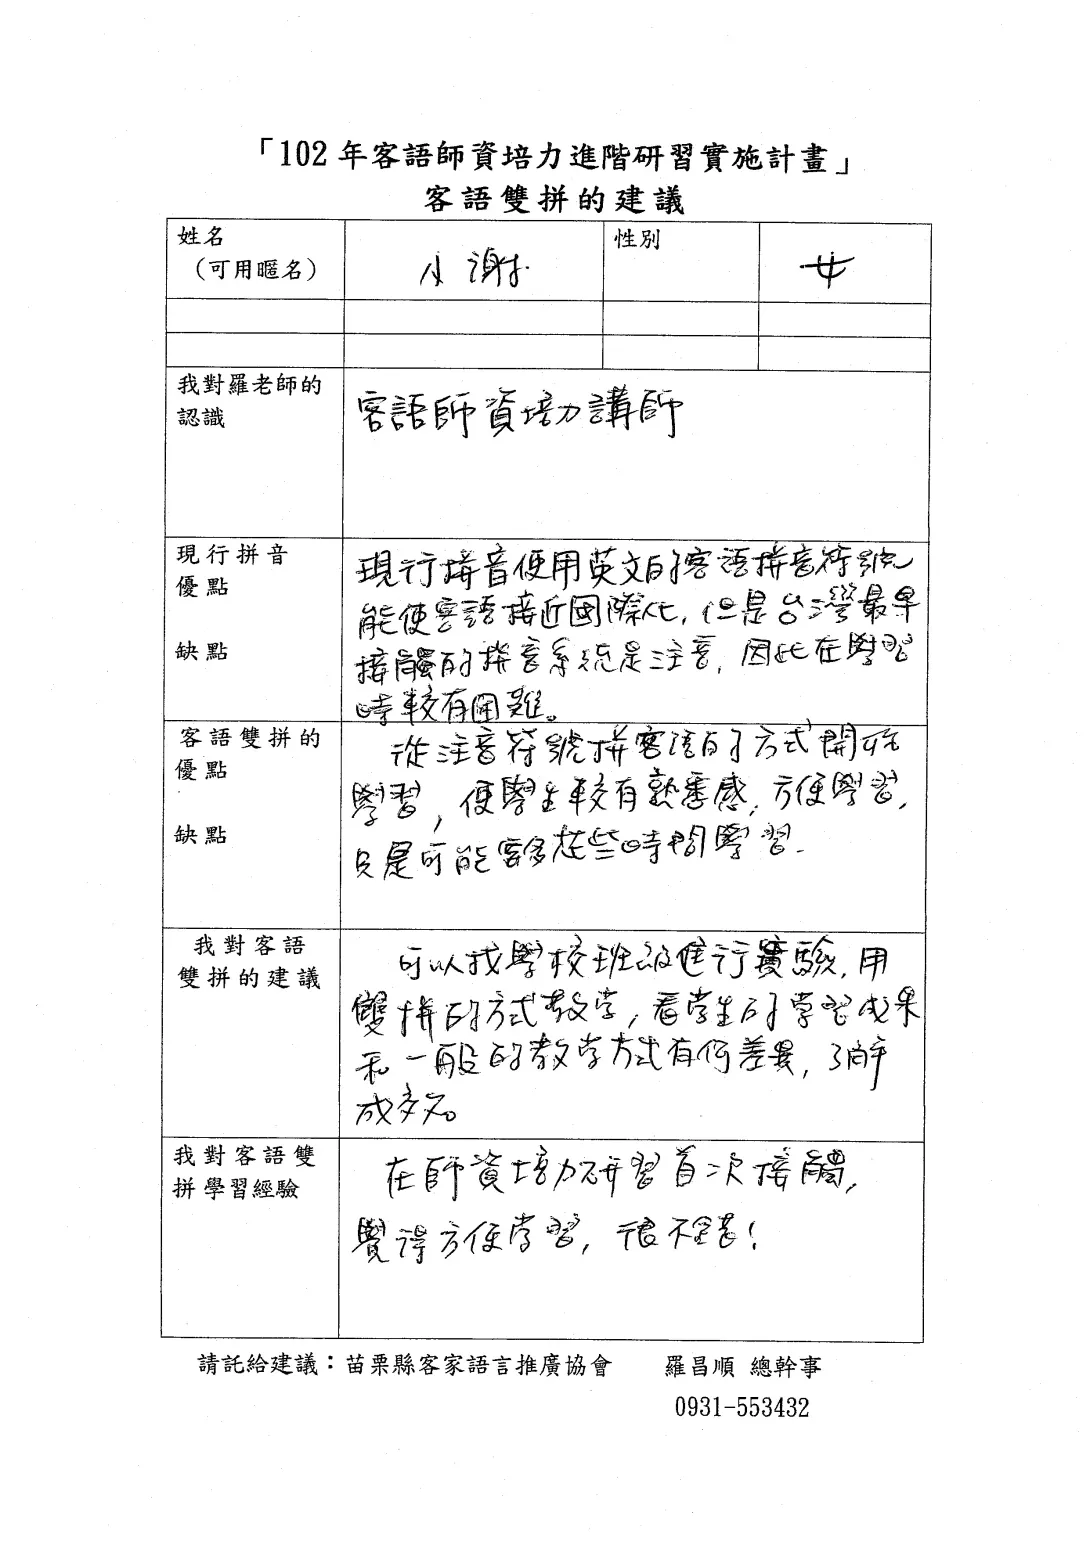 「102 年客語師資培力進階研習實施計畫」
客語雙拼的建議
姓名
（可用暱名）
小謝
性別
女
我對羅老師的
認識
客語師資培力講師
現行拼音
優點
缺點
現行拼音使用英文的客語拼音符號
能使客語接近國際化, 但是台灣最早
接觸的拼音系統是注音, 因此在學習
時較有困難。
客語雙拼的
優點
缺點
從注音符號拼客語的方式開始
學習, 使學生較有熟悉感, 方便學習,
只是可能需多花些時間學習.
我對客語
雙拼的建議
可以找學校班級進行實驗, 用
雙拼的方式教学, 看学生的学習成果
和一般的教学方式有何差異, 了解
成效。
我對客語雙
拼學習經驗
在師資培力研習首次接觸,
覺得方便学習, 很不錯!
請託給建議：苗栗縣客家語言推廣協會 羅昌順 總幹事
0931-553432